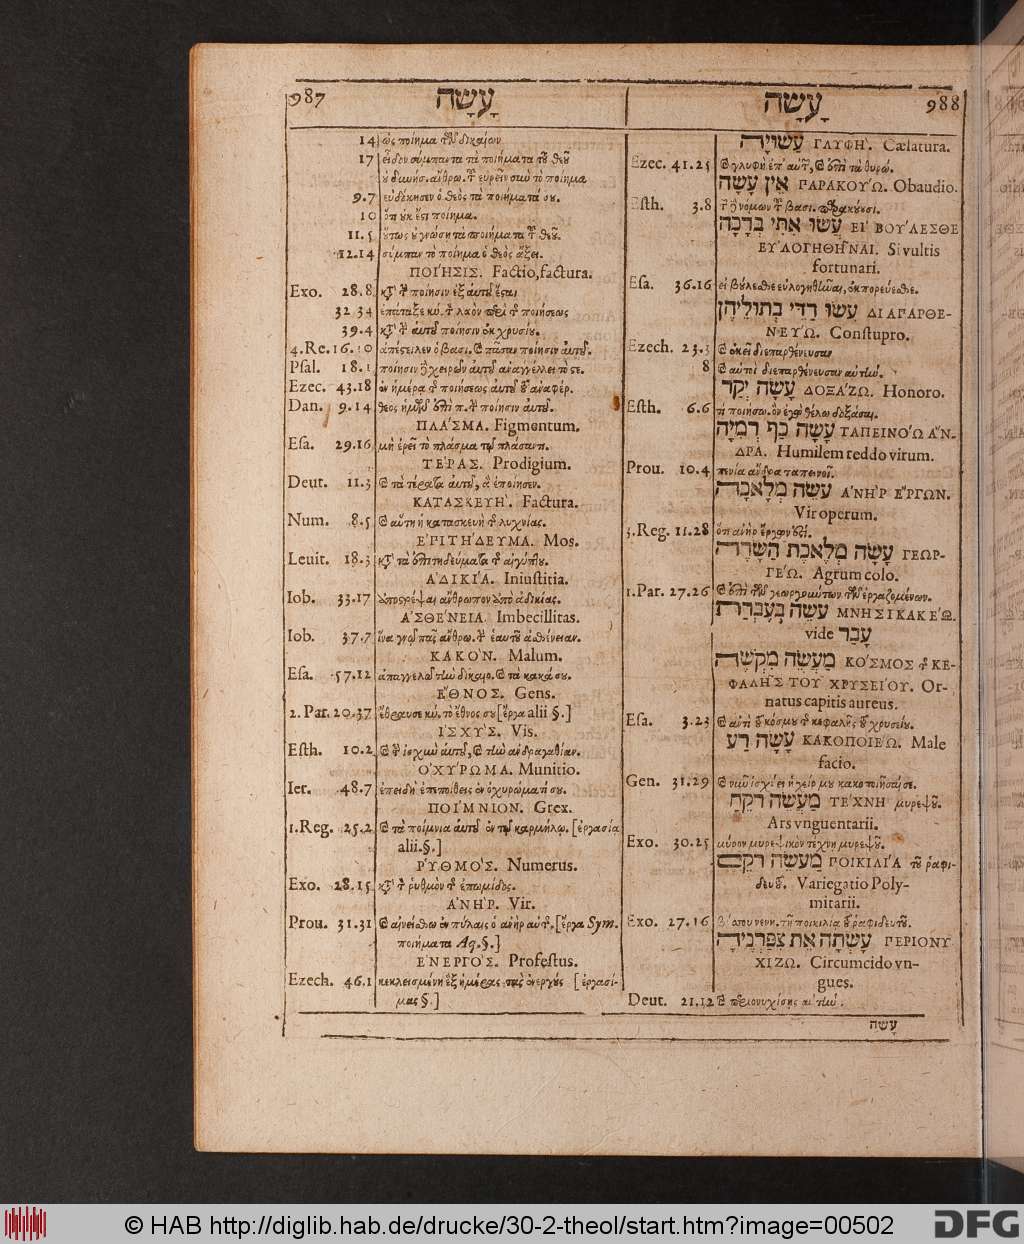 987 עָשָׂה
14 ὡς ποίημα τῶν δικαίων
17 εἶδον σύμπαντα τὰ ποιήματα τοῦ θεοῦ
τοῦ εὑρεῖν σὺν τὸ ποίημα
9.7 εὐδόκησεν ὁ θεὸς τὰ ποιήματά σου.
10 ὅτι οὐκ ἔστι ποίημα.
11.5 οὕτως οὐ γνώσῃ τὰ ποιήματα τοῦ θεοῦ.
12.14 σύμπαν τὸ ποίημα ὁ θεὸς ἄξει.
ΠΟΙΉΣΙΣ. Factio, factura.
Exo. 28.8 ποίησιν ἐξ αὐτοῦ ἔσται
32 34 ἐπάταξε κύ. τ λαὸν περὶ τ ποιήσεως
39.4 αὐτοῦ ποίησιν ἐκ χρυσίου.
4.Re.16.10 ἀπέστειλεν ὁ βασι. πᾶσαν ποίησιν αὐτοῦ.
Psal. 18.1 ποίησιν χειρῶν αὐτοῦ ἀναγγέλλει τὸ στε.
Ezec. 43.18 ἐν ἡμέρᾳ τ ποιήσεως αὐτοῦ τοῦ ἀναφέρ.
Dan. 9.14 θεος ἡμῶν ἐπὶ π. τ ποίησιν αὐτοῦ.
ΠΛΆΣΜΑ. Figmentum.
Esa. 29.16 μὴ ἐρεῖ τὸ πλάσμα τῷ πλάσαντι.
ΤΕΡΑΣ. Prodigium.
Deut. 11.3 τὰ τέρατα αὐτοῦ, ἃ ἐποίησεν.
ΚΑΤΑΣΚΕΥΉ. Factura.
Num. 8.5 αὕτη ἡ κατασκευὴ τ λυχνίας.
ΕΠΙΤΉΔΕΥΜΑ. Mos.
Leuit. 18.3 τὰ ἐπιτηδεύματα τ αἰγύπτου.
ἈΔΙΚΙΆ. Iniustitia.
Iob. 33.17 ἀποστρέψαι ἄνθρωπον ἀπὸ ἀδικίας.
ἈΣΘΈΝΕΙΑ. Imbecillitas.
Iob. 37.7 ἵνα γνῷ πᾶς ἄνθρω. τ ἑαυτοῦ ἀσθένειαν.
ΚΑΚΟΝ. Malum.
Esa. 57.12 ἀπαγγελῶ τὴν δικαιο. τὰ κακά σου.
ἜΘΝΟΣ. Gens.
2. Par. 20.37 ἔθραυσε κύ. τὸ ἔθνος σου [ἔργα alii §.]
ΙΣΧΥΣ. Vis.
Esth. 10.2 τ ἰσχὺν αὐτοῦ, τὴν ἀνδραγαθίαν.
ὈΧΎΡΩΜΑ. Munitio.
Ier. 48.7 ἐπειδὴ ἐπεποίθεις ἐν ὀχυρώματί σου.
ΠΟΊΜΝΙΟΝ. Grex.
1.Reg. 25.2 τὰ ποίμνια αὐτοῦ ἐν τῷ καρμήλῳ. [ἐργασία
alii.§.]
ῬΥΘΜΟΣ. Numerus.
Exo. 28.15 ῥυθμὸν τ ἐπωμίδος.
ἈΝΗΡ. Vir.
Prou. 31.31 αἰνείσθω ἐν πύλαις ὁ ἀνὴρ αὐτ. [ἔργα Sym.
ποιήματα Aq.§.]
ΕΝΕΡΓΟΣ. Profestus.
Ezech. 46.1 κεκλεισμένη ἓξ ἡμέρας τὰς ἐνεργούς [ἐργασί-
μας §.]
עָשָׂה 988
עֲשׂוּיָה ΓΛΥΦΉ. Cælatura.
Ezec. 41.25 γλυφὴ ἐπ' αὐτ, ἐπὶ τὰ θυρώ.
אֵין עָשָׂה ΠΑΡΑΚΟΎΩ. Obaudio.
Esth. 3.8 τ νόμων τ βασι. παρακούουσι.
עֲשׂוּ אִתִּי בְרָכָה ΕΙ ΒΟΎΛΕΣΘΕ
ΕΥΛΟΓΗΘΗ͂ΝΑΙ. Si vultis
fortunari.
Esa. 36.16 εἰ βούλεσθε εὐλογηθῆναι, ἐκπορεύεσθε.
עָשׂוּ דַדֵּי בְתוּלֵיהֶן ΔΙΑΠΑΡΘΕ-
ΝΕΎΩ. Constupro.
Ezech. 23.3 ἐκεῖ διεπαρθένευσαν
8 αὐτοὶ διεπαρθένευσαν αὐτήν.
עָשָׂה יְקָר ΔΟΞΆΖΩ. Honoro.
Esth. 6.6 τί ποιήσω. ὃν ἐγὼ θέλω δοξάσαι.
עָשָׂה כַף רְמִיָּה ΤΑΠΕΙΝΌΩ ἌΝ-
ΔΡΑ. Humilem reddo virum.
Prou. 10.4 πενία ἄνδρα ταπεινοῖ.
עֹשֵׂה מְלָאכָה ἈΝῊΡ ἜΡΓΩΝ.
Vir operum.
3.Reg. 11.28 ὅτι ἀνὴρ ἔργων ἐστί.
עָשָׂה מְלֶאכֶת הַשָּׂדֶה ΓΕΩΡ-
ΓΈΩ. Agrum colo.
1.Par. 27.26 ἐπὶ τῶν γεωργούντων τῶν ἐργαζομένων.
עֹשֵׂה בְּעֶבְרַת ΜΝΗΣΙΚΑΚΈΩ.
vide עָבַר
מַעֲשֵׂה מִקְשֶׁה ΚΟΣΜΟΣ τ ΚΕ-
ΦΑΛΗ͂Σ ΤΟΥ ΧΡΥΣΕΊΟΥ. Or-
natus capitis aureus.
Esa. 3.23 αὐτὶ τοῦ κόσμου τ κεφαλῆς τοῦ χρυσείου.
עָשָׂה רַע ΚΑΚΟΠΟΙΈΩ. Male
facio.
Gen. 31.29 νῦν ἰσχύει ἡ χείρ μου κακοποιῆσαί σε.
מַעֲשֵׂה רֹקֵחַ ΤΈΧΝΗ μυρεψοῦ.
Ars vnguentarii.
Exo. 30.25 μύρον μυρεψικὸν τέχνη μυρεψοῦ.
מַעֲשֵׂה רֹקֵם ΠΟΙΚΙΛΊΑ τοῦ ῥαφι-
δευτ. Variegatio Poly-
mitarii.
Exo. 27.16 τῇ ποικιλίᾳ τοῦ ῥαφιδευτοῦ.
עָשְׂתָה אֶת צִפָּרְנֶיהָ ΠΕΡΙΟΝΥ
ΧΙΖΩ. Circumcido vn-
gues.
Deut. 21.12 περιονυχίσῃς αὐτήν.
עשה
© HAB http://diglib.hab.de/drucke/30-2-theol/start.htm?image=00502
DFG